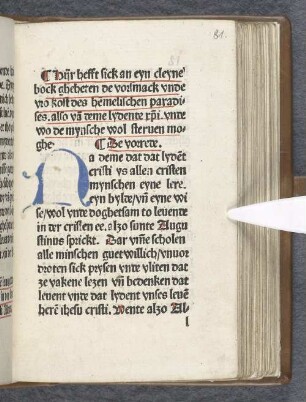 81.
¶ Hijr hefft sick an eyn cleyne
bock gheheten de vorsmack vnde
vro kost des hemelischen paradi-
ses. also vā deme lydente xp̄i. vnte
wo de mynsche wol steruen mo-
ghe ¶ De vorrete.
Na deme dat dat lydēt
cristi ys allen cristen
mynschen eyne lere.
eyn bylte/ vñ eyne wi
se/ wol vnte dogbetsam to leuente
in ter cristen ee. alzo sante Augu
stinus sprickt. Dar vmme scholen
alle minschen guet willich/ vnuor
droten sick prysen vnte vliten dat
ze vakene lezen vñ bedenken dat
leuent vnte dat lydent vnses leuē
herē ihesu cristi. Wente alzo Al-
l